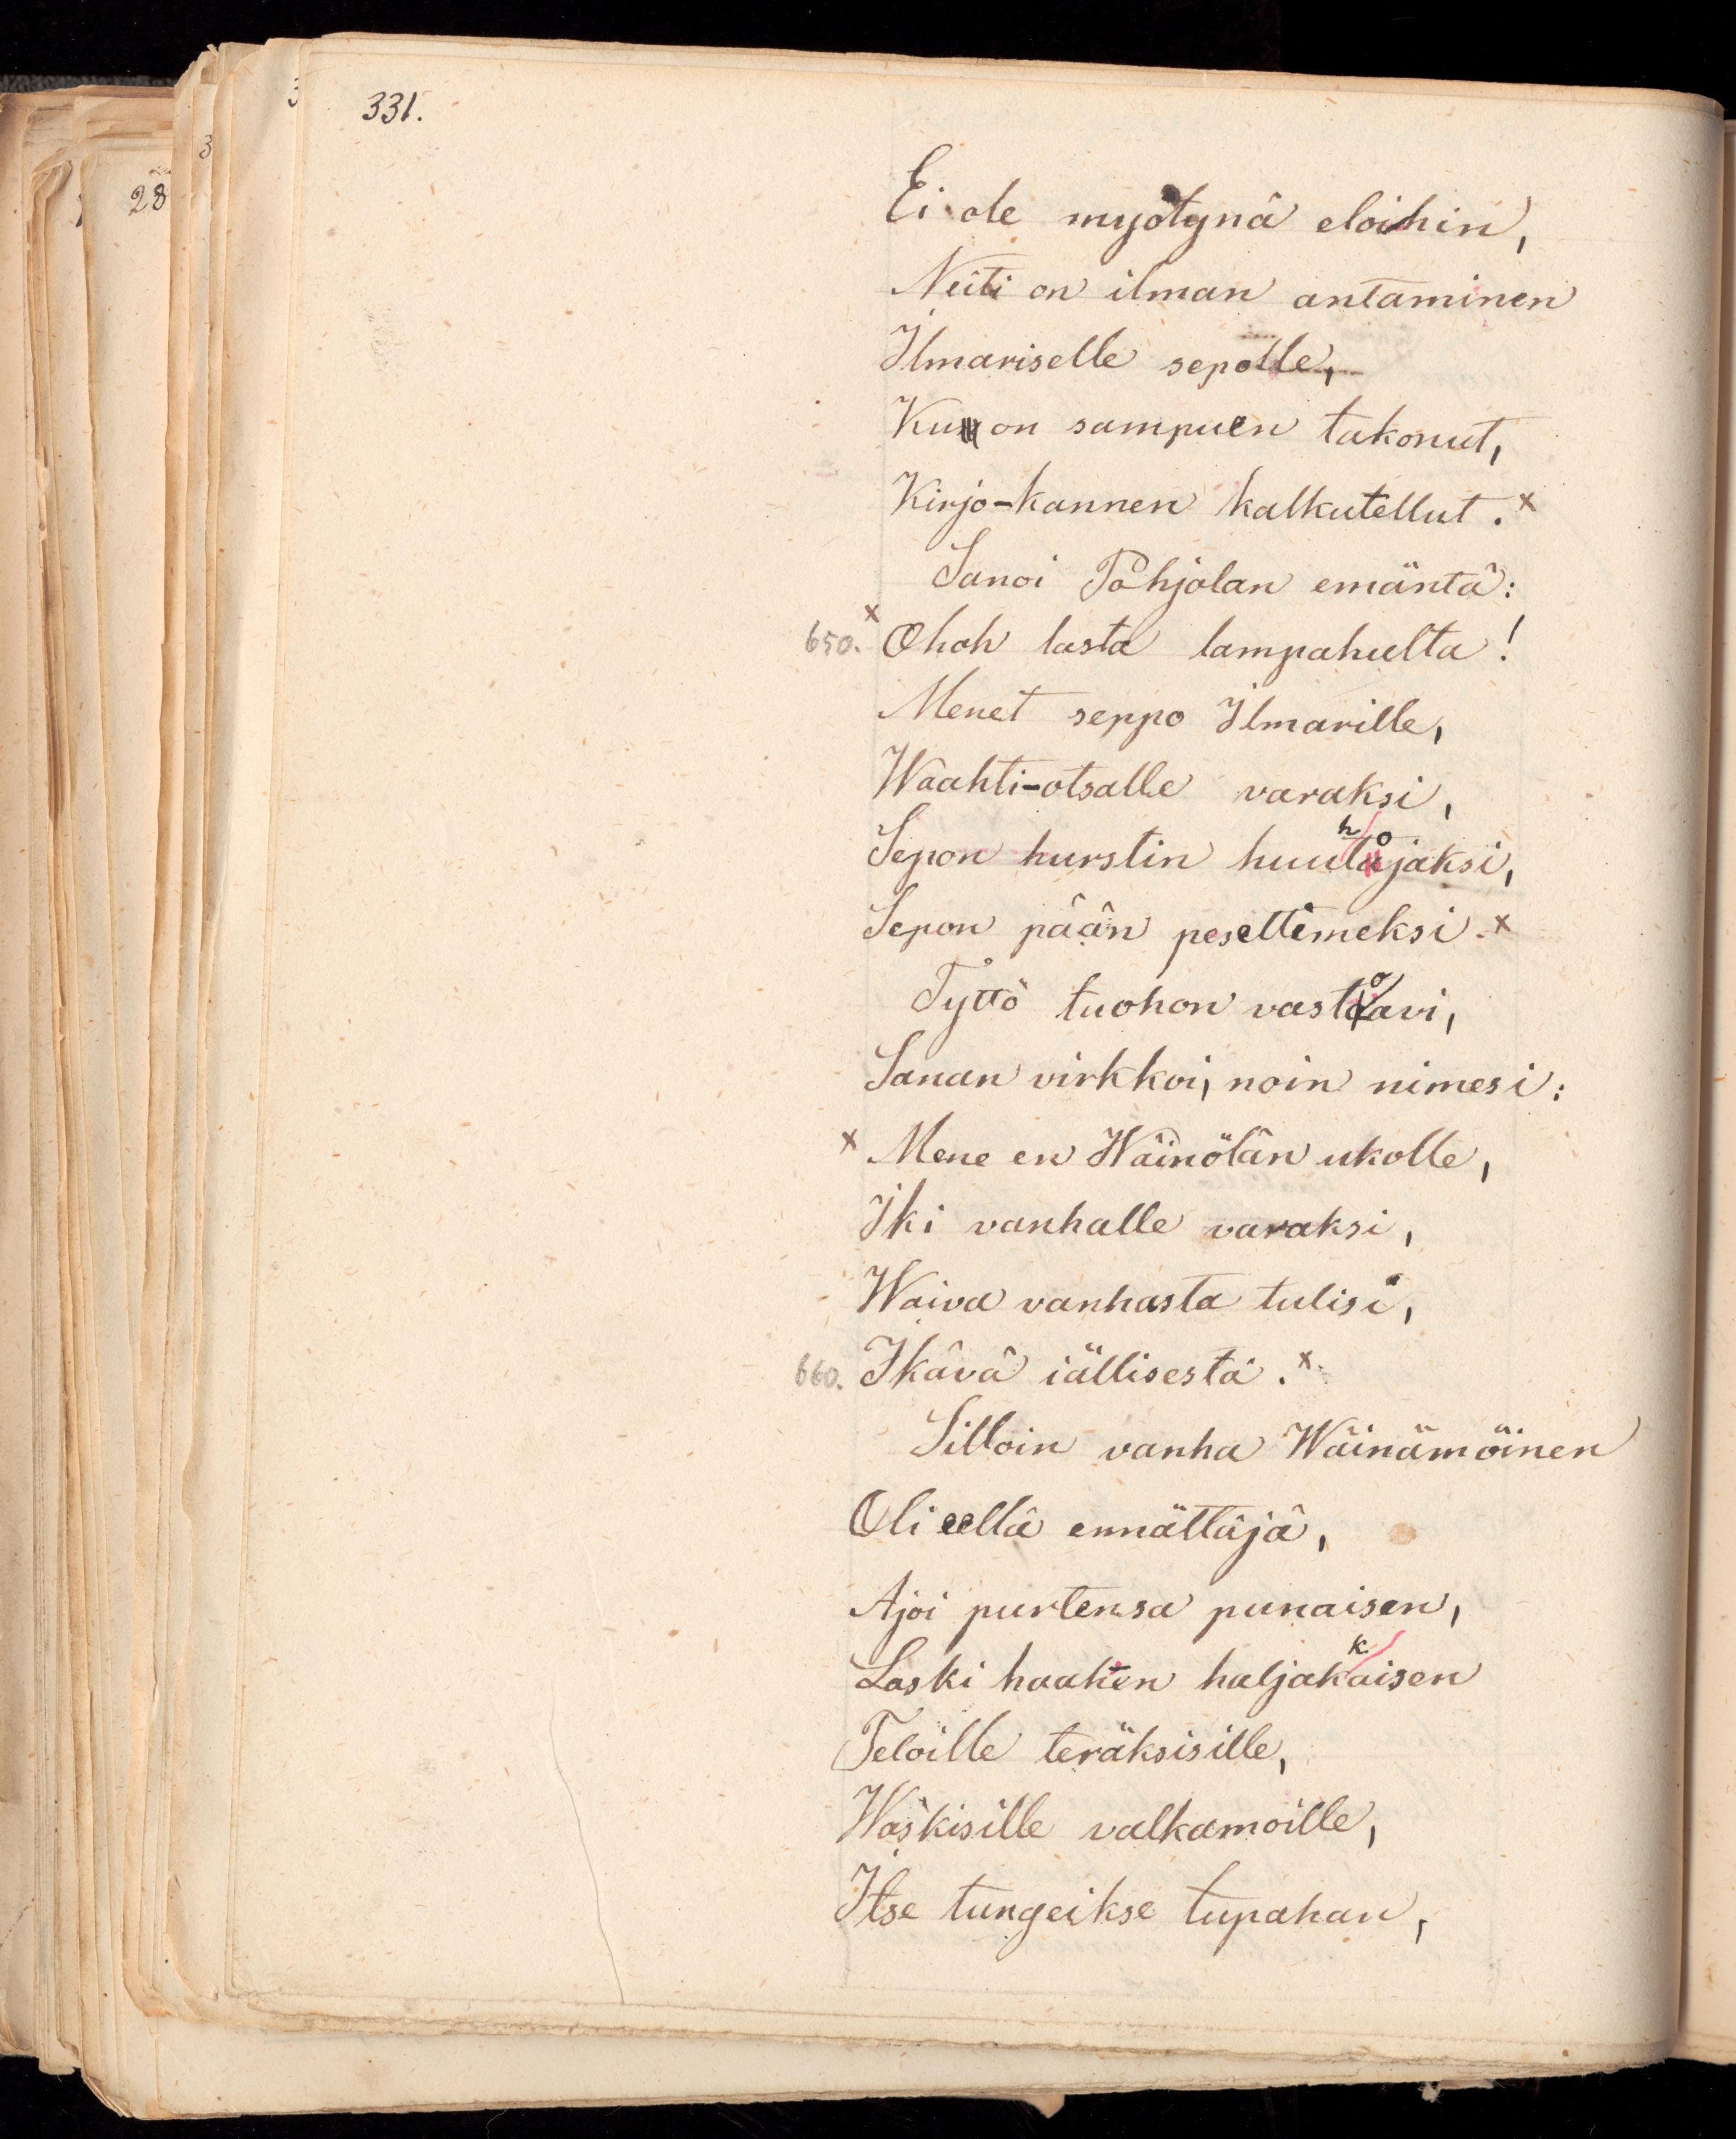 331.
28
Ei ole myötynä eloihin,
Neiti on ilman antaminen
Ilmariselle sepolle,
Ku on sampuen takonut,
Kirjo-kannen kalkutellut. x
Sanoi Pohjolan emäntä:
650. x Ohoh lasta lampahulta!
Menet seppo Ilmarille,
Waahti-otsalle varaksi,
Sepon hurstin huuhtojaksi,
Sepon pään pesettimeksi. x
Tyttö tuohon vastoavi,
Sanan virkkoi, noin nimesi:
x Mene en Wäinölän ukolle,
Iki vanhalle varaksi,
Waiva vanhasta tulisi,
660. Ikävä iällisestä. x
Silloin vanha Wäinämöinen
Oli eellä ennättäjä,
Ajoi purtensa punaisen,
Laski haahen haljakkaisen
Teloille teräksisille,
Waskisille valkamoille,
Itse tungeikse tupahan,